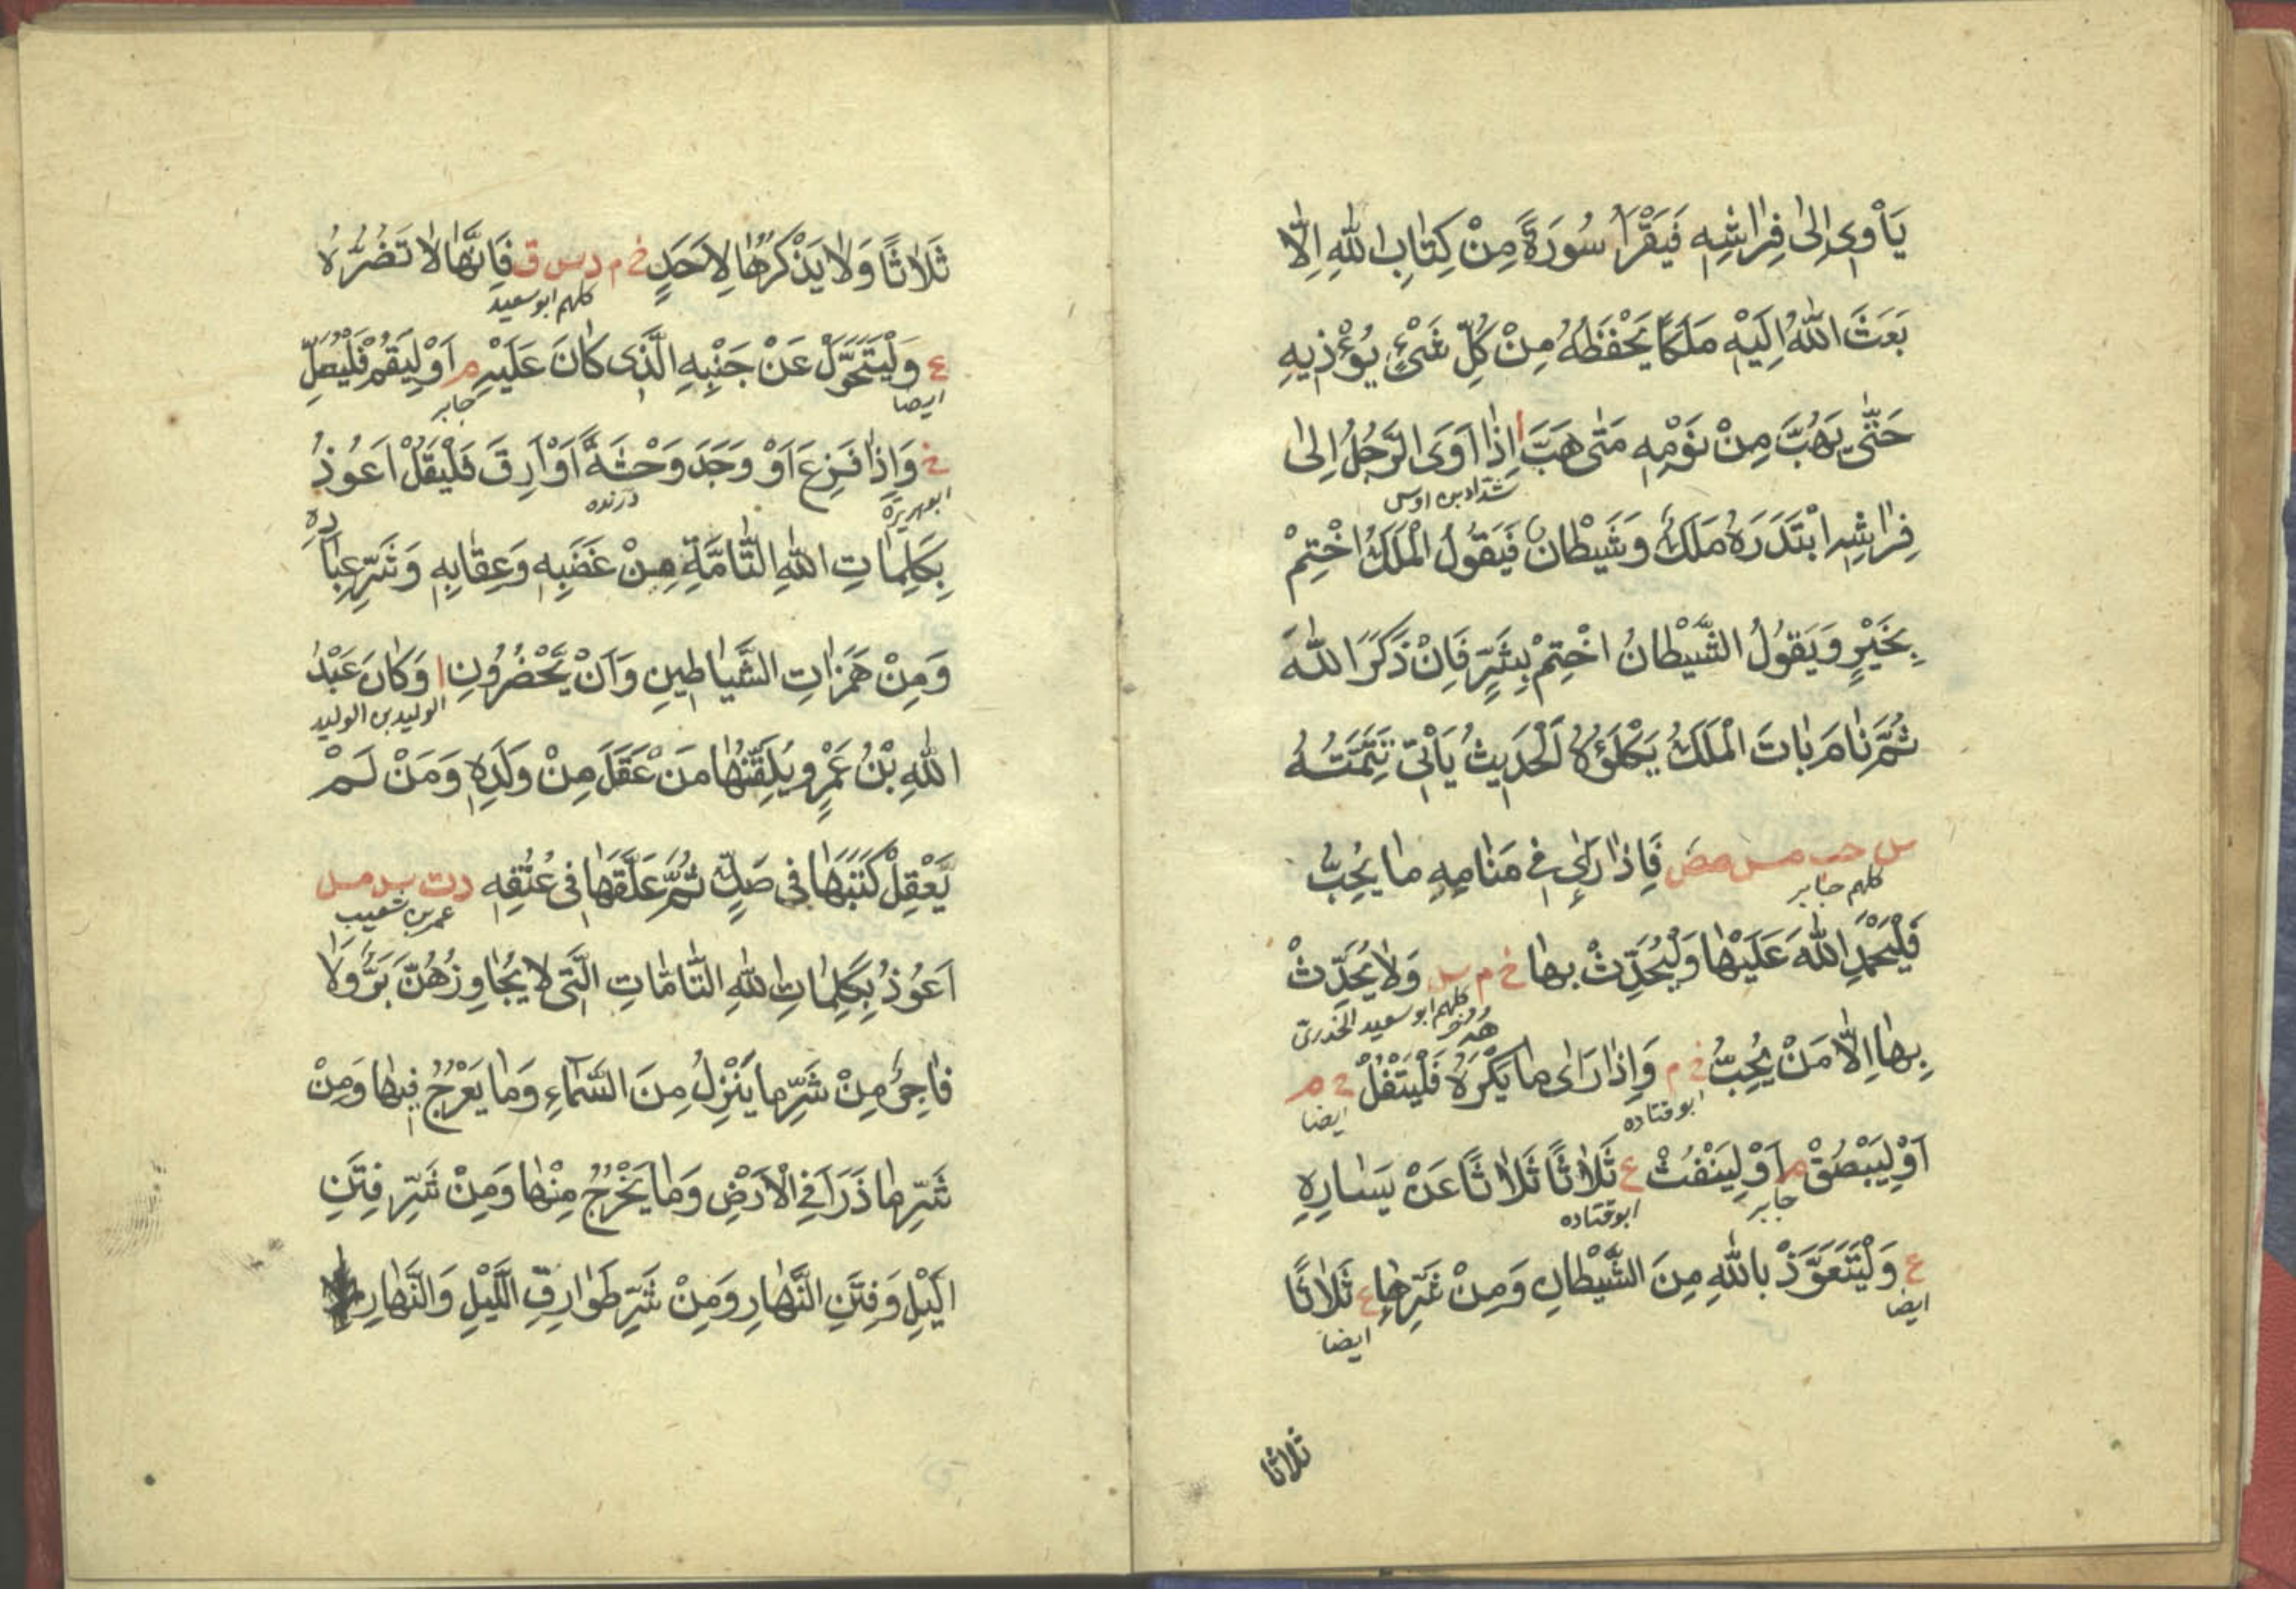 يَأْوِي إِلىٰ فِرَاشِهِ فَيَقْرَأُ سُورَةً مِنْ كِتَابِ اللّٰهِ اِلَّا
بَعَثَ اللّٰهُ اِلَيْهِ مَلَكًا يَحْفَظُهُ مِنْ كُلِّ شَيْءٍ يُؤْذِيهِ
حَتّٰى يَهُبَّ مِنْ نَوْمِهِ مَتٰى هَبَّ ا اِذَا اَوَى الرَّجُلُ اِلىٰ
شداد بن اوس
فِرَاشِهِ ابْتَدَرَهُ مَلَكٌ وَشَيْطَانٌ فَيَقُولُ الْمَلَكُ اخْتِمْ
بِخَيْرٍ وَيَقُولُ الشَّيْطَانُ اخْتِمْ بِشَرٍّ فَاِنْ ذَكَرَ اللّٰهَ
ثُمَّ نَامَ بَاتَ الْمَلَكُ يَكْلَؤُهُ اَلْحَدِيثُ يَأْتِي تَتِمَّتُهُ
س حب مس مص فَاِذَا رَاٰى فِي مَنَامِهِ مَا يُحِبُّ
كلهم جابر
فَلْيَحْمَدِ اللّٰهَ عَلَيْهَا وَلْيُحَدِّثْ بِهَا خ م س وَلَا يُحَدِّثْ
كلهم ابو سعيد الخدري
بِهَا اِلَّا مَنْ يُحِبُّ خ م وَاِذَا رَاٰى مَا يَكْرَهُ فَلْيَتْفُلْ خ م
ابو قتاده ايضا
اَوْ لِيَبْصُقْ م اَوْ لِيَنْفُثْ ع ثَلَاثًا ثَلَاثًا عَنْ يَسَارِهِ
جابر ابو قتاده
ع وَلْيَتَعَوَّذْ بِاللّٰهِ مِنَ الشَّيْطَانِ وَمِنْ شَرِّهَا ع ثَلَاثًا
ايضا ايضا
ثلاثا
ثَلَاثًا وَلَا يَذْكُرُهَا لِاَحَدٍ خ م د س ق فَاِنَّهَا لَا تَضُرُّهُ
كلهم ابو سعيد
ع وَلْيَتَحَوَّلْ عَنْ جَنْبِهِ الَّذِي كَانَ عَلَيْهِ م اَوْ لِيَقُمْ فَلْيُصَلِّ
ايضا جابر
خ وَاِذَا فَزِعَ اَوْ وَجَدَ وَحْشَةً اَوْ اَرِقَ فَلْيَقُلْ اَعُوذُ
ابو هريرة
بِكَلِمَاتِ اللّٰهِ التَّامَّةِ مِنْ غَضَبِهِ وَعِقَابِهِ وَشَرِّ عِبَادِهِ
وَمِنْ هَمَزَاتِ الشَّيَاطِينِ وَاَنْ يَحْضُرُونِ ا وَكَانَ عَبْدُ
الوليد بن الوليد
اللّٰهِ بْنُ عَمْرٍو يُلَقِّنُهَا مَنْ عَقَلَ مِنْ وَلَدِهِ وَمَنْ لَمْ
يَعْقِلْ كَتَبَهَا فِي صَكٍّ ثُمَّ عَلَّقَهَا فِي عُنُقِهِ د ت س مس
عمر بن شعيب
اَعُوذُ بِكَلِمَاتِ اللّٰهِ التَّامَّاتِ الَّتِي لَا يُجَاوِزُهُنَّ بَرٌّ وَلَا
فَاجِرٌ مِنْ شَرِّ مَا يَنْزِلُ مِنَ السَّمَاءِ وَمَا يَعْرُجُ فِيهَا وَمِنْ
شَرِّ مَا ذَرَاَ فِي الْاَرْضِ وَمَا يَخْرُجُ مِنْهَا وَمِنْ شَرِّ فِتَنِ
الَّيْلِ وَفِتَنِ النَّهَارِ وَمِنْ شَرِّ طَوَارِقِ اللَّيْلِ وَالنَّهَارِ